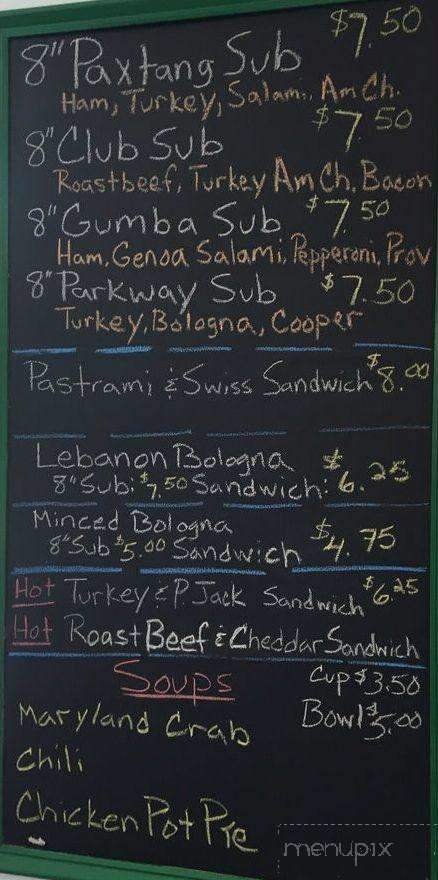 $7.50
8" Paxtang Sub
Ham, Turkey, Salami, Am Ch.
8" Club Sub $7.50
Roastbeef, Turkey Am Ch, Bacon
8" Gumba Sub $7.50
Ham, Genoa Salami, Pepperoni, Prov
8" Parkway Sub $7.50
Turkey, Bologna, Cooper
Pastrami & Swiss Sandwich $8.00
Lebanon Bologna
8" Sub: $7.50 Sandwich: $6.25
Minced Bologna
8" Sub $5.00 Sandwich $4.75
Hot Turkey & P. Jack Sandwich $6.25
Hot Roast Beef & Cheddar Sandwich
Soups Cup $3.50
Maryland Crab Bowl $5.00
Chili
Chicken Pot Pie
menupix